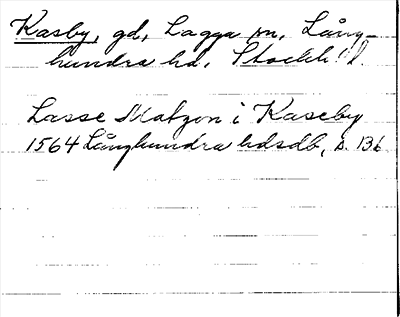 Kasby, gd, Lagga sn, Lång-
hundra hd, Stockh. l.
Lasse Matzon i Kaseby
1564 Långhundra hdsdb, s. 136